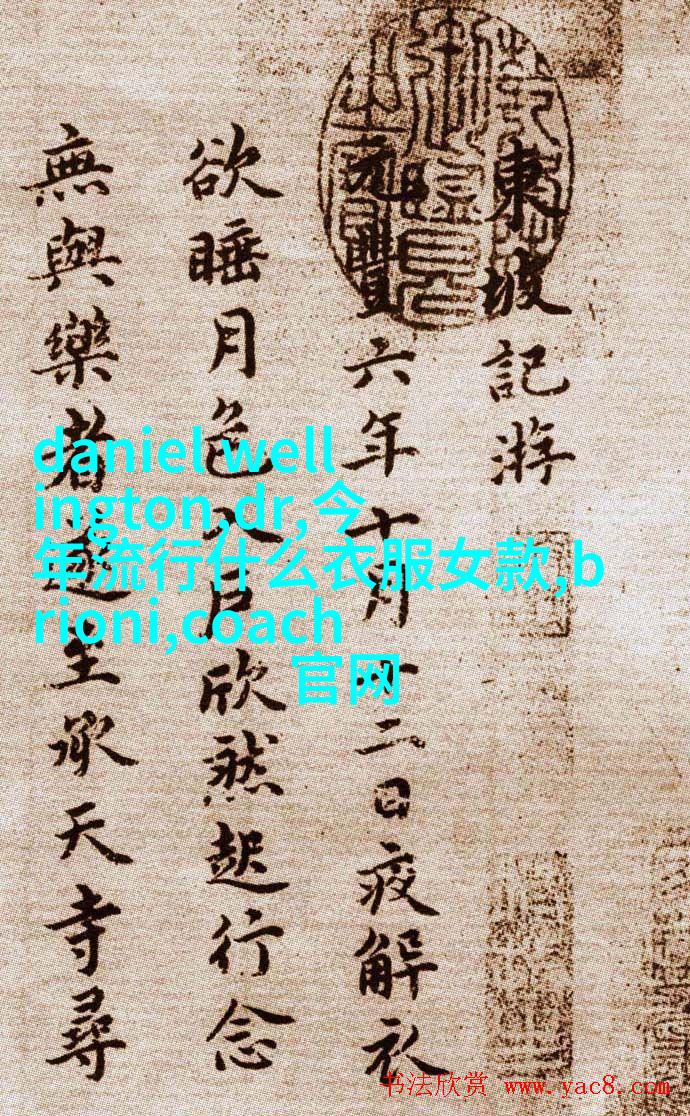 東坡記游
元豐六年十月十二日疫解衣
欲睡月色入戶欣然起行念
無與樂者遂至承天寺尋
daniel well
ington,dr,今
年流行什么衣服女款,b
rioni,coach
官网
书法欣赏 www.yac8.com